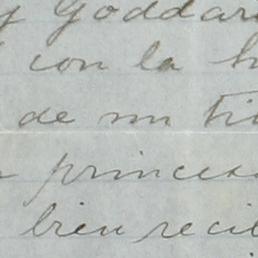 y Goddar
con la h
de un ti
princesa
bien recib